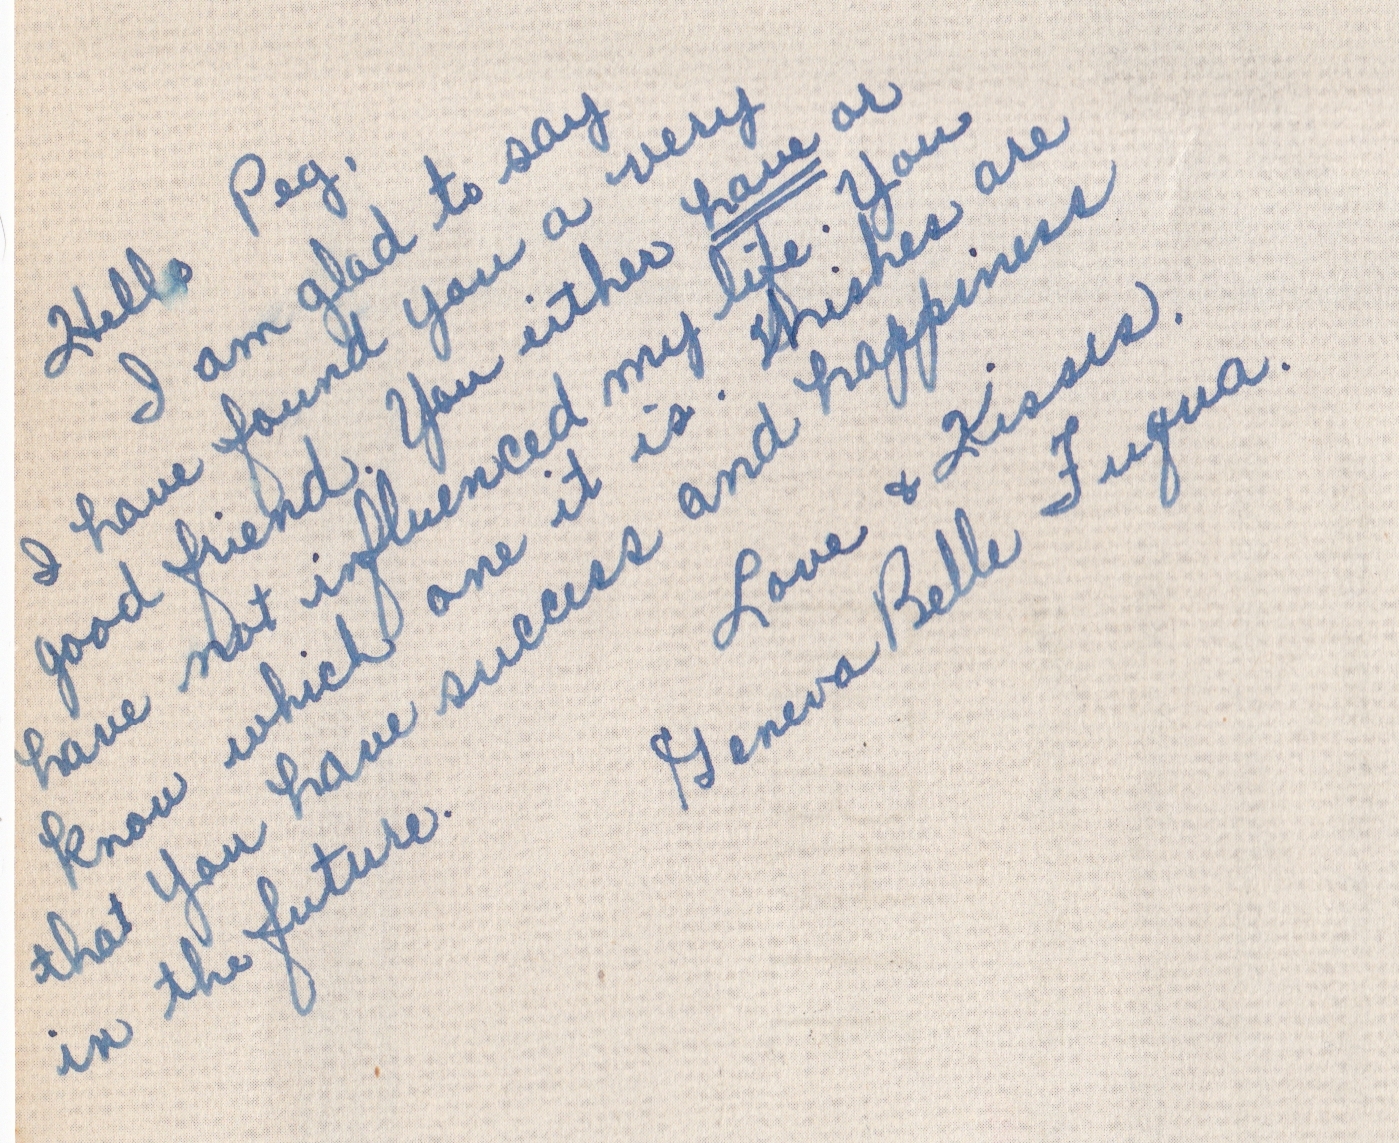 Hello Peg,
I am glad to say
I have found you a very
good friend. You either have or
have not influenced my life. You
know which one it is. Wishes are
that you have success and happiness
in the future.
Love & Kisses.
Geneva Belle Fuqua.